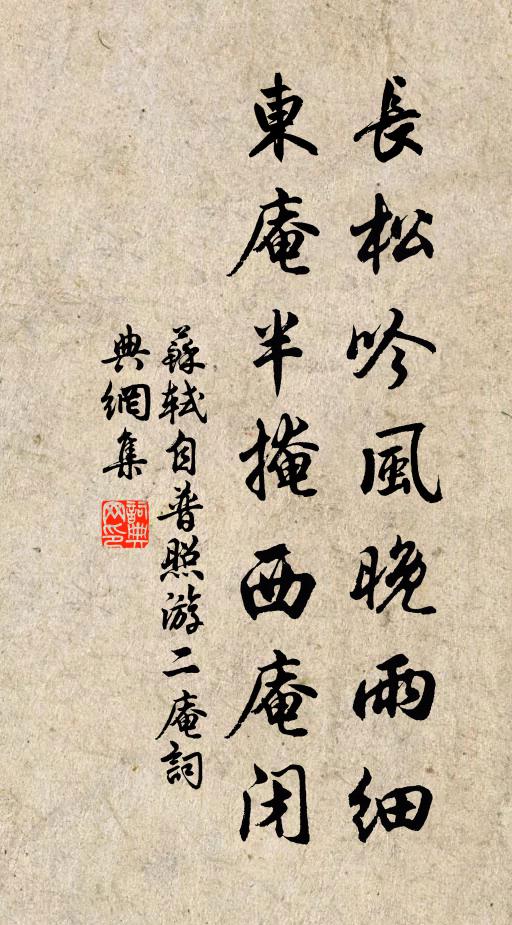 長松吟風晚雨細
東庵半掩西庵闭
蘇軾自普照游二庵詞
典網集
詞典
网印